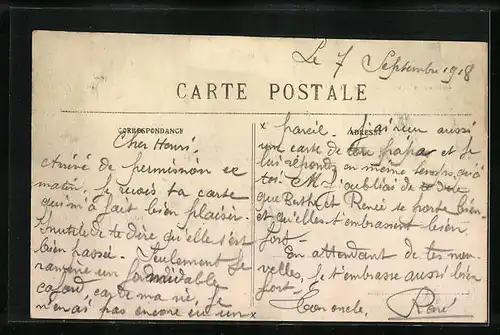 Le 7 Septembre 1918
CARTE POSTALE
CORRESPONDANCE
ADRESSE
Cher Henri.
Arrivé de permission ce
matin, Je reçois ta carte
qui m'a fait bien plaisir.
Inutile de te dire qu'elle s'est
bien passé. Seulement Je
ramène un formidable
cafard, car de ma vie, Je
n'en ai pas encore eu un
pareil. J'ai reçu aussi
une carte de ton papa et Je
lui répond en même temps qu'à
toi. J'oubliais de te dire
que Berthe et Renée se porte bien
et qu'elles t'embrassent bien
fort.
En attendant de tes nou-
velles, Je t'embrasse aussi bien
fort. Ton oncle, René